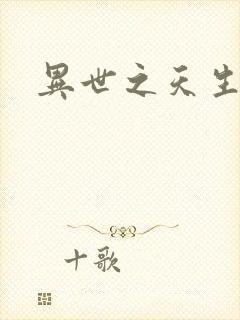 異世之天生
十歌